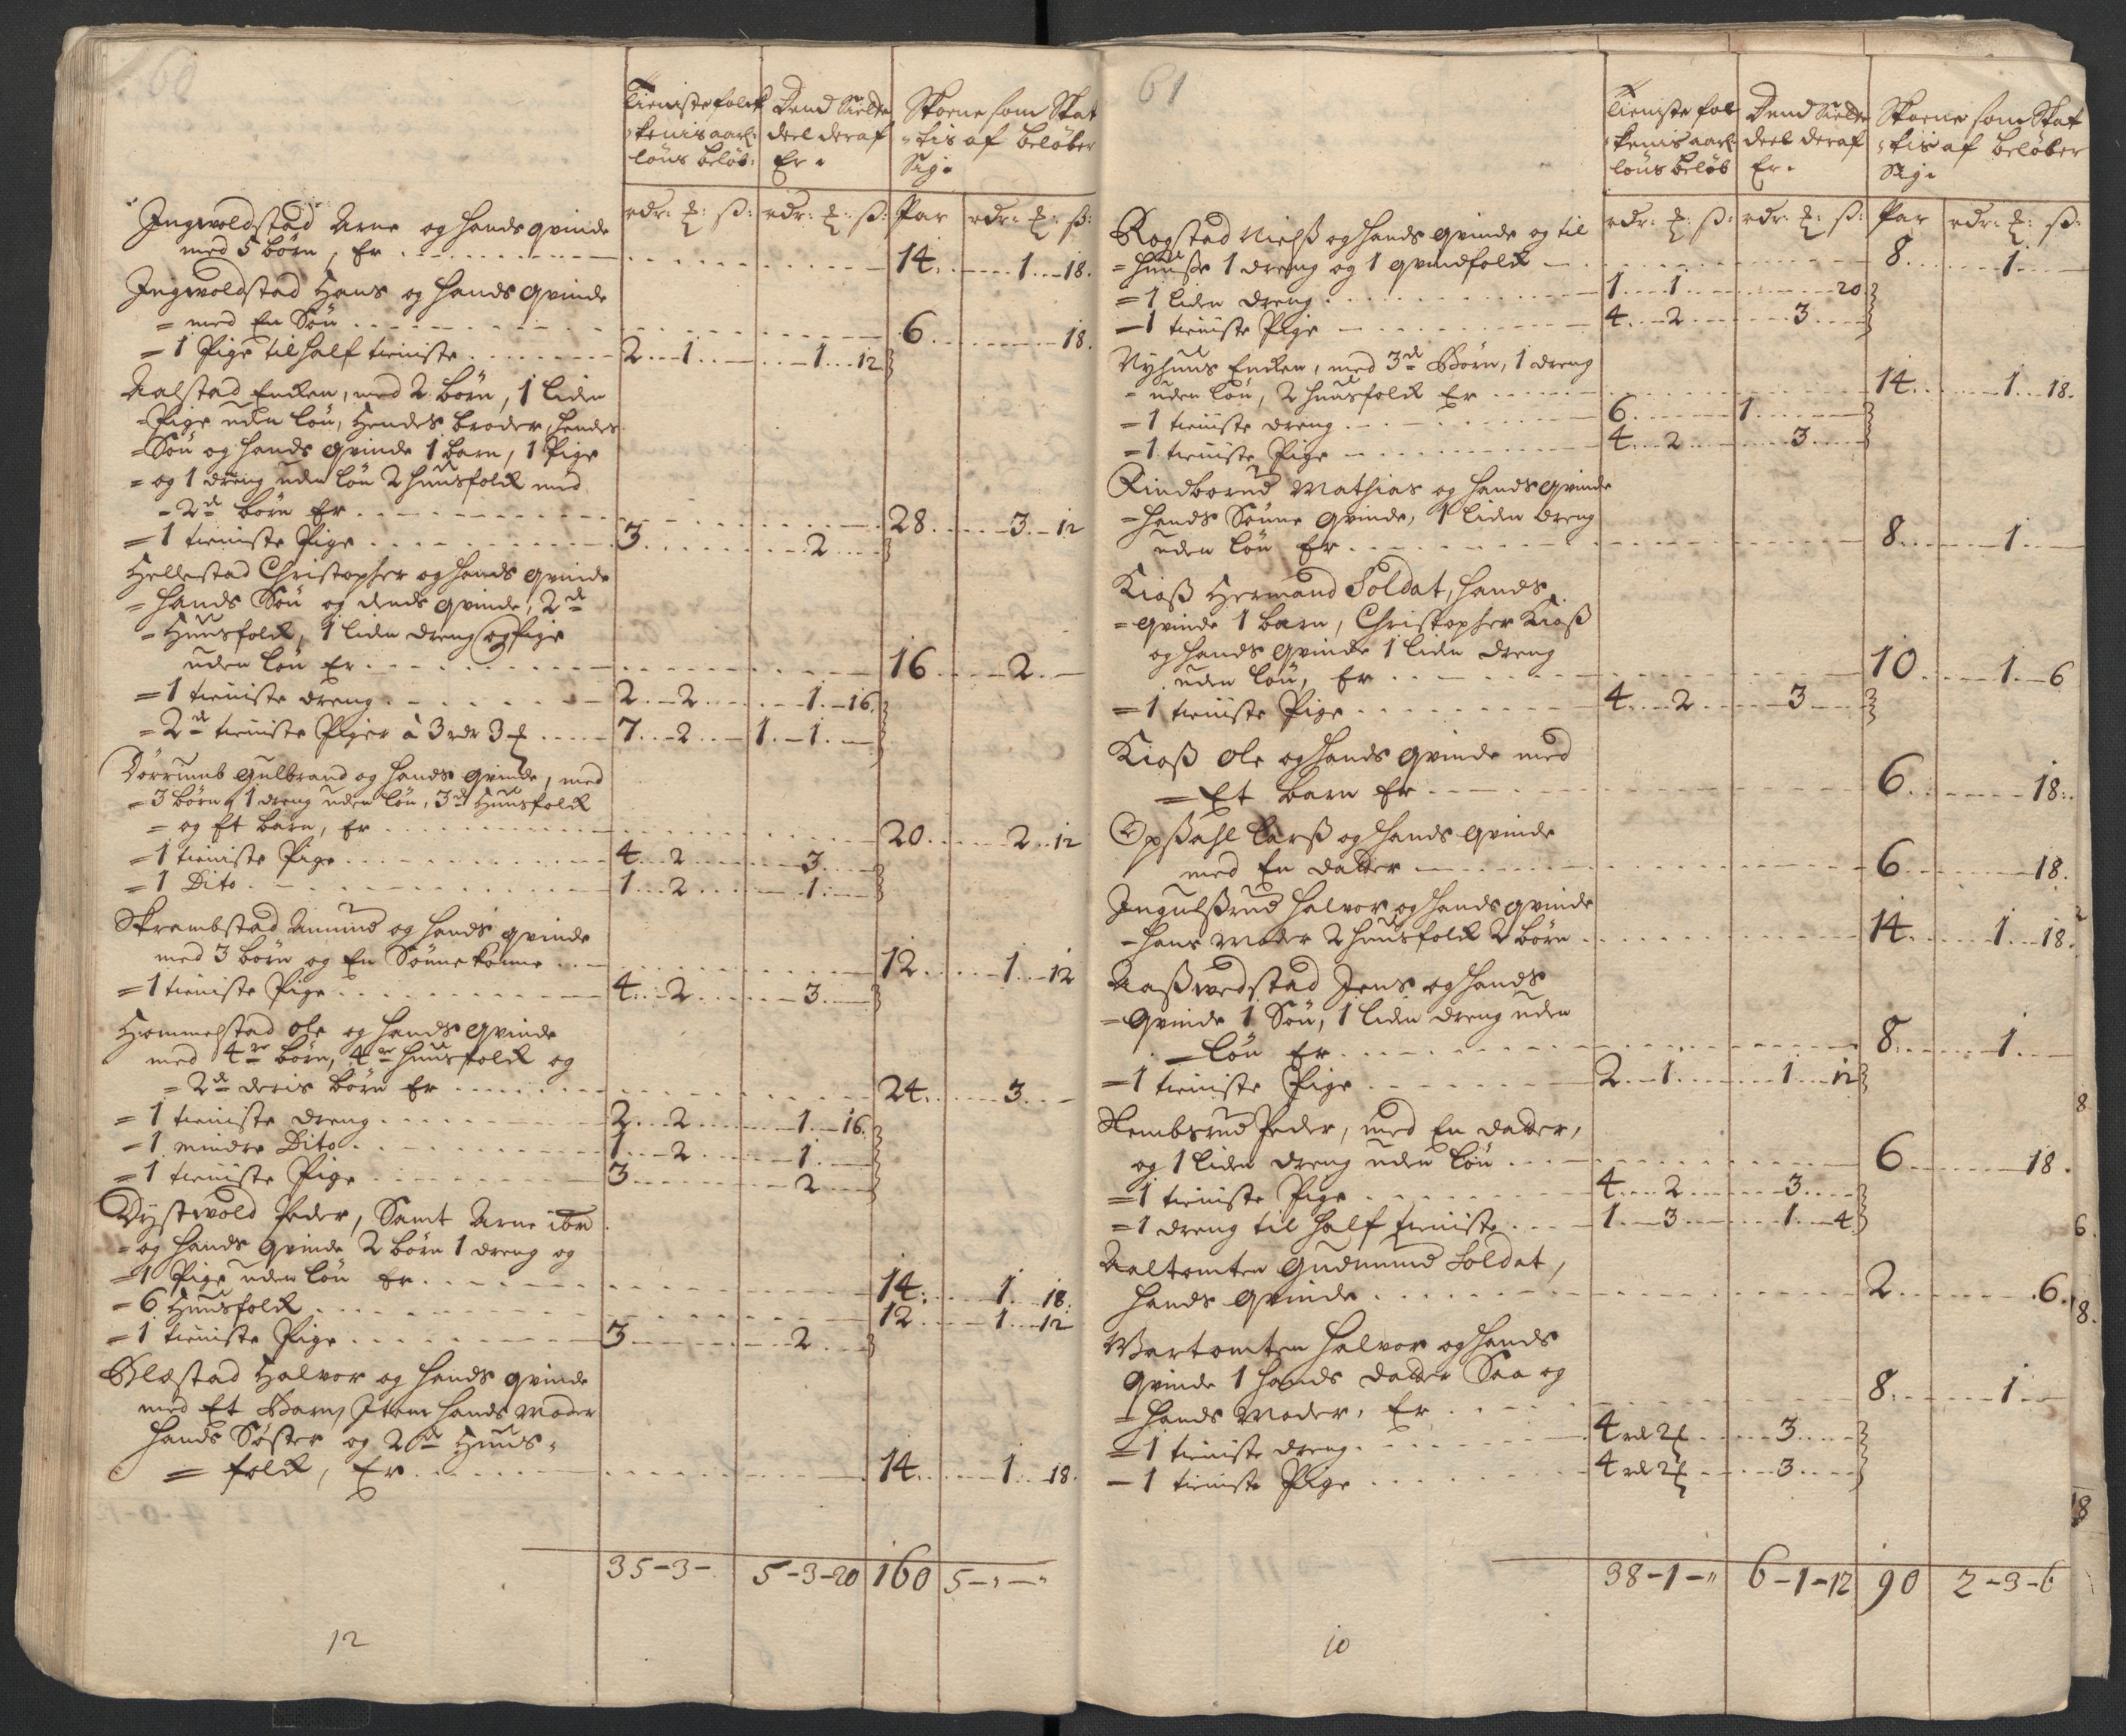 60
Tieniste folc¬
kenis aarl:
löns belöb:
Dend Siette
deel deraf
Er.
Skoene som Skat¬
tis af belöber
Sig.
rdr: ß: rdr: ß: Par rdr: ß:
Ingwoldstad Arne og hands qvinde
med 5 börn, Er 14. 1. 18.
Ingwoldstad Hans og hands qvinde
= med En Sön 6. 18.
= 1 Pige til half tieniste 2. 1. 1. 12
Aalstad Encken, med 2 börn, 1 liden
= Pige uden lön, Hendes broder, hendes
= Sön og hands qvinde 1 barn, 1 Pige
= og 1 dreng uden lön 2 huusfolck med
- 2de börn Er 28. 3. 12
= 1 tieniste Pige 3. 2.
Hellestad Christopher og hands qvinde
= hands Sön og dends qvinde, 2de
= Huusfolck, 1 liden dreng og Pige
uden lön Er 16 2.
= 1 tieniste dreng 2. 2. 1. 16.
= 2de tieniste Piger à 3 rdr 3 7. 2. 1. 1.
Dörrumb Gulbrand og hands qvinde, med
= 3 börn, 1 dreng uden lön, 3de Huusfolck
= og Et barn, Er 20. 2. 12
= 1 tieniste Pige 4. 2. 3.
= 1 Dito 1. 2. 1.
Skrambstad Amund og hands qvinde
med 3 börn og En Sönne konne 12. 1. 12
= 1 tieniste Pige 4. 2. 3.
Hommelstad Ole og hands qvinde
med 4re börn, 4re huusfolck og
= 2de deris börn Er 24. 3.
= 1 tieniste dreng 2. 2. 1. 16.
= 1 mindre Dito 1. 2. 1.
= 1 tieniste Pige 3. 2
Dystwold Peder, Samt Arne ibm
= og hands qvinde 2 börn 1 dreng og
= 1 Pige uden lön Er 14. 1. 18.
= 6 Huusfolck 12. 1. 12
= 1 tieniste Pige 3. 2.
Blæstad Halvor og hands qvinde
med Et Barn, Item hands Moder
hands Söster og 2de Huus¬
= folck, Er 14. 1. 18.
35-3- 5-3-20 160 5-"-"
12
61
Tieniste fol¬
kenis aarl:
löns belöb
Dend Siette
deel deraf
Er.
Skoene som Skat¬
tis af belöber
Sig.
rdr: ß: rdr: ß: Par rdr: ß:
Rogstad Nielß og hands qvinde og til
= huuße 1 dreng og 1 qvindfolck 8. 1.
= 1 liden dreng 1. 1. 20.
= 1 tieniste Pige 4. 2. 3.
Nyhuus Encken, med 3de Börn, 1 dreng
= uden lön, 2 huusfolck Er 14. 1. 18.
= 1 tieniste dreng 6. 1.
= 1 tieniste Pige 4. 2. 3.
Rindborud Mathias og hands qvinde
= hands Sönne qvinde, 1 liden dreng
uden lön Er 8. 1.
Kioß Hermand Soldat, hands
= qvinde 1 barn, Christopher Kioß
og hands qvinde 1 liden dreng
uden lön, Er 10. 1. 6
= 1 tieniste Pige 4. 2. 3.
Kioß Ole og hands qvinde med
= Et barn Er 6. 18.
Opßahl Larß og hands qvinde
med En datter 6. 18.
Ingulßrud Halvor og hands qvinde
= hans Moder 2 huusfolck 2 börn 14. 1. 18.
Aaßwedstad Jens og hands
= Qvinde 1 Sön, 1 liden dreng uden
= lön Er 8. 1.
= 1 tieniste Pige 2. 1. 1. 12
Slembsrud Peder, med En datter,
og 1 liden dreng uden lön 6. 18.
= 1 tieniste Pige 4. 2. 3.
= 1 dreng til half tieniste 1. 3. 1. 4.
Aaltomten Gudmund Soldat,
hands qvinde 2. 6.
Wartomten Halvor og hands
Qvinde 1 hands datter Saa og
= hands Moder, Er 8. 1.
= 1 tieniste dreng 4 rd 2 3.
= 1 tieniste Pige 4 rd 2 3.
38-1-" 6-1-12 90 2-3-6
10